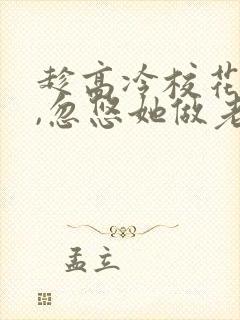 趁高冷校花
,忽悠她做老
孟立